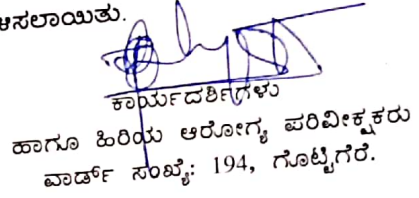 ಳಿಸಲಾಯಿತು.
ಕಾರ್ಯದರ್ಶಿಗಳು
ಹಾಗೂ ಹಿರಿಯ ಆರೋಗ್ಯ ಪರಿವೀಕ್ಷಕರು
ವಾರ್ಡ್ ಸಂಖ್ಯೆ: 194, ಗೊಟ್ಟಿಗೆರೆ.